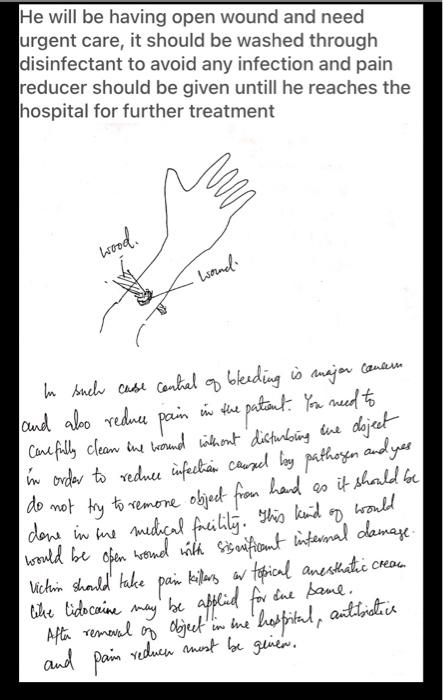 He will be having open wound and need
urgent care, it should be washed through
disinfectant to avoid any infection and pain
reducer should be given untill he reaches the
hospital for further treatment
wood.
wound.
In such case control of bleeding is major concern
and also reduce pain in the patient. You need to
Carefully clean the wound without disturbing the object
in order to reduce infection caused by pathogen and yes
do not try to remove object from hand as it should be
done in the medical facility. This kind of would
would be open wound with significant internal damage.
Victim should take pain killers or topical anesthatic cream
like lidocaine may be applied for the same.
After removal of object in the hospital, antibiotics
and pain reducer must be given.